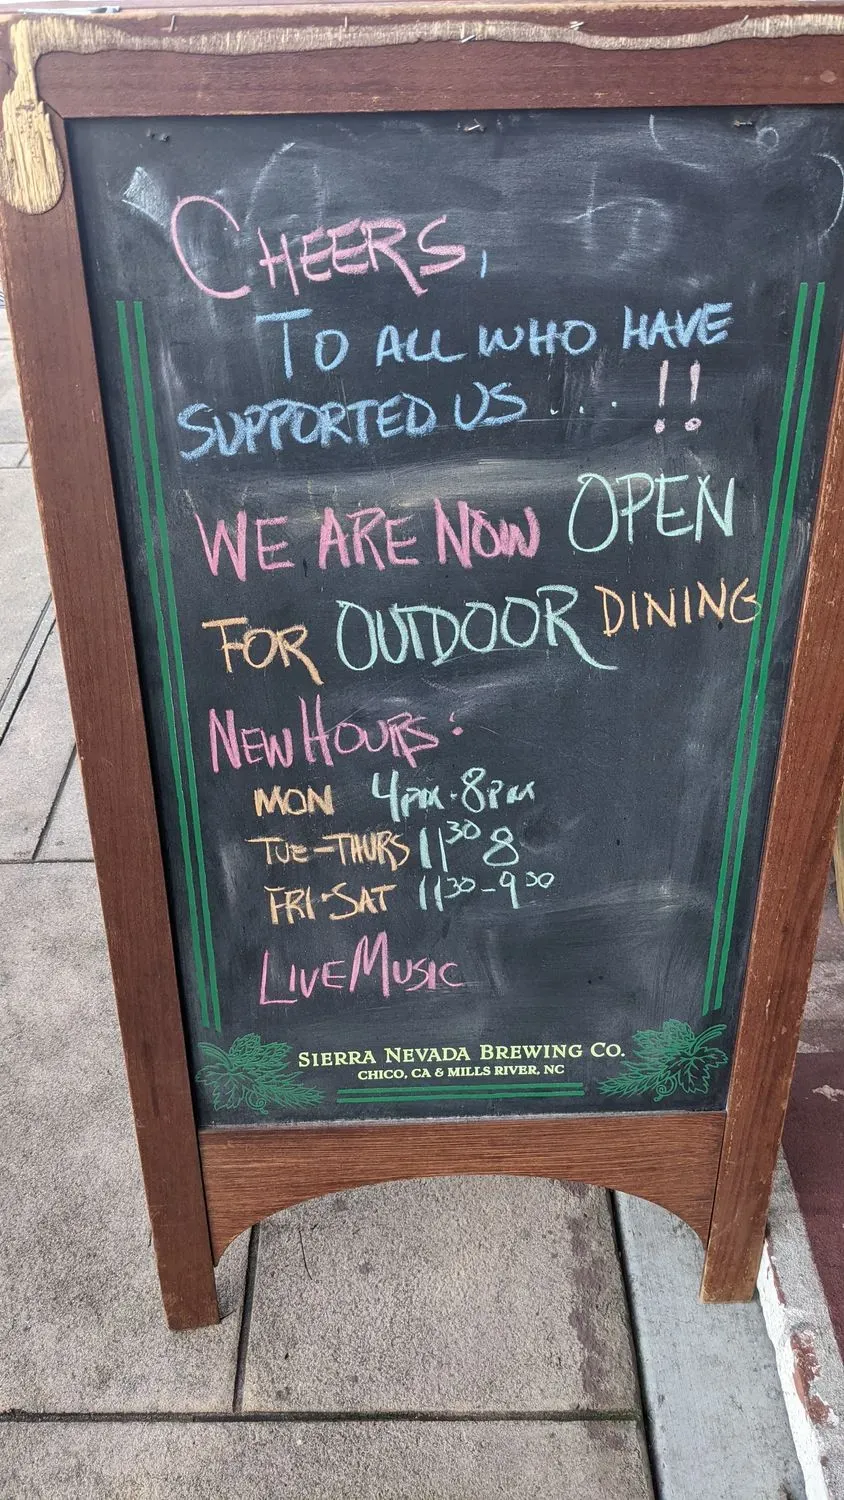 CHEERS,
TO ALL WHO HAVE
SUPPORTED US ... !!
WE ARE NOW OPEN
FOR OUTDOOR DINING
NEW HOURS:
MON 4PM-8PM
TUE-THURS 11³⁰ 8
FRI-SAT 11³⁰-9³⁰
LIVE MUSIC
SIERRA NEVADA BREWING CO.
CHICO, CA & MILLS RIVER, NC